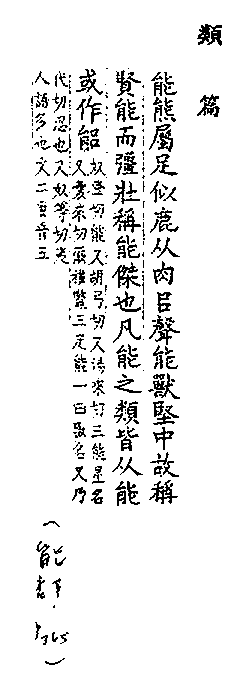 類篇
能熊屬足似鹿从肉㠯聲能獸堅中故稱
賢能而彊壯稱能傑也凡能之類皆从能
或作䏻奴登切能又胡弓切又湯來切三能星名
又囊來切爾雅鼈三足能一曰獸名又乃
代切忍也又奴等切夷
人語多也文二重音五